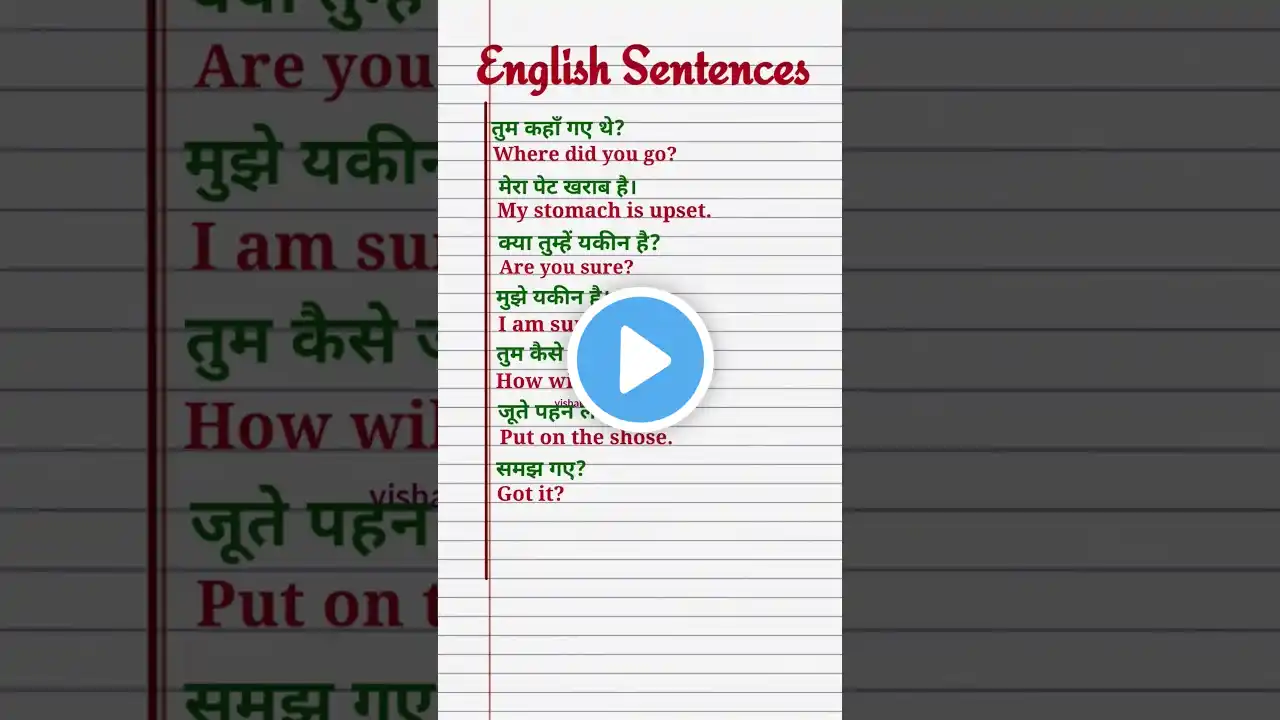 English Sentences
तुम कहाँ गए थे?
Where did you go?
मेरा पेट खराब है।
My stomach is upset.
क्या तुम्हें यकीन है?
Are you sure?
मुझे यकीन है।
I am
तुम कैसे
How
जूते पहन
Put on the shose.
समझ गए?
Got it?